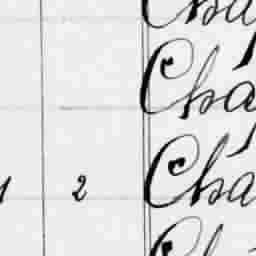 Cha
Cha
1 2 Cha